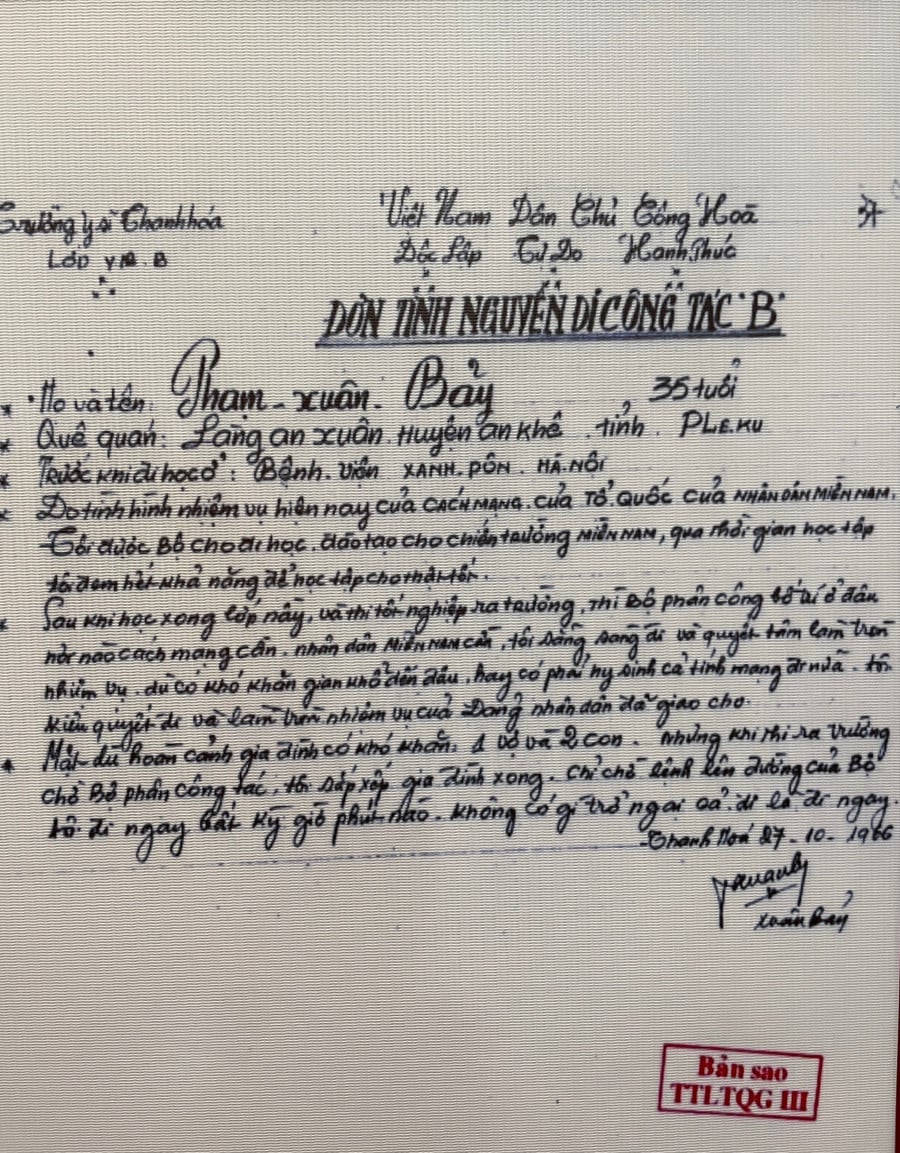 Trường y sĩ Thanh hóa
Lớp Y12.B
Việt Nam Dân Chủ Cộng Hoà
Độc Lập Tự Do Hạnh Phúc
ĐƠN TÌNH NGUYỆN ĐI CÔNG TÁC "B"
Họ và tên: Phạm - xuân - Bảy, 35 tuổi
Quê quán: Làng an xuân. Huyện an khê. tỉnh. PLE.KU
Trước khi đi học ở: Bệnh. viện XANH. PÔN. HÀ. NỘI
Do tình hình nhiệm vụ hiện nay của CÁCH MẠNG. CỦA TỔ. QUỐC CỦA NHÂN DÂN MIỀN NAM.
Tôi được Bộ cho đi học. đào tạo cho chiến trường MIỀN NAM, qua thời gian học tập
tôi đem hết khả năng để học tập cho thật tốt.
Sau khi học xong lớp này, và thi tốt nghiệp ra trường, thì Bộ phân công bố trí ở đâu
nơi nào cách mạng cần. nhân dân MIỀN NAM CẦN, tôi sẵng sàng đi và quyết tâm làm tròn
nhiệm vụ. dù có khó khăn gian khổ đến đâu, hay có phải hy sinh cả tính mạng đi nữa. tôi
kiên quyết đi và làm tròn nhiệm vụ của Đảng nhân dân đã giao cho.
Mặt dù hoàn cảnh gia đình có khó khăn, 1 vợ và 2 con. Nhưng khi thi ra trường
chờ Bộ phân công tác, tôi sắp xếp gia đình xong. chỉ chờ lệnh lên đường của Bộ
tôi đi ngay bất kỳ giờ phút nào. không có gì trở ngại cả. đi là đi ngay.
Thanh Hoá 27-10-1966
Xuân Bảy
Bản sao
TTLTQG III